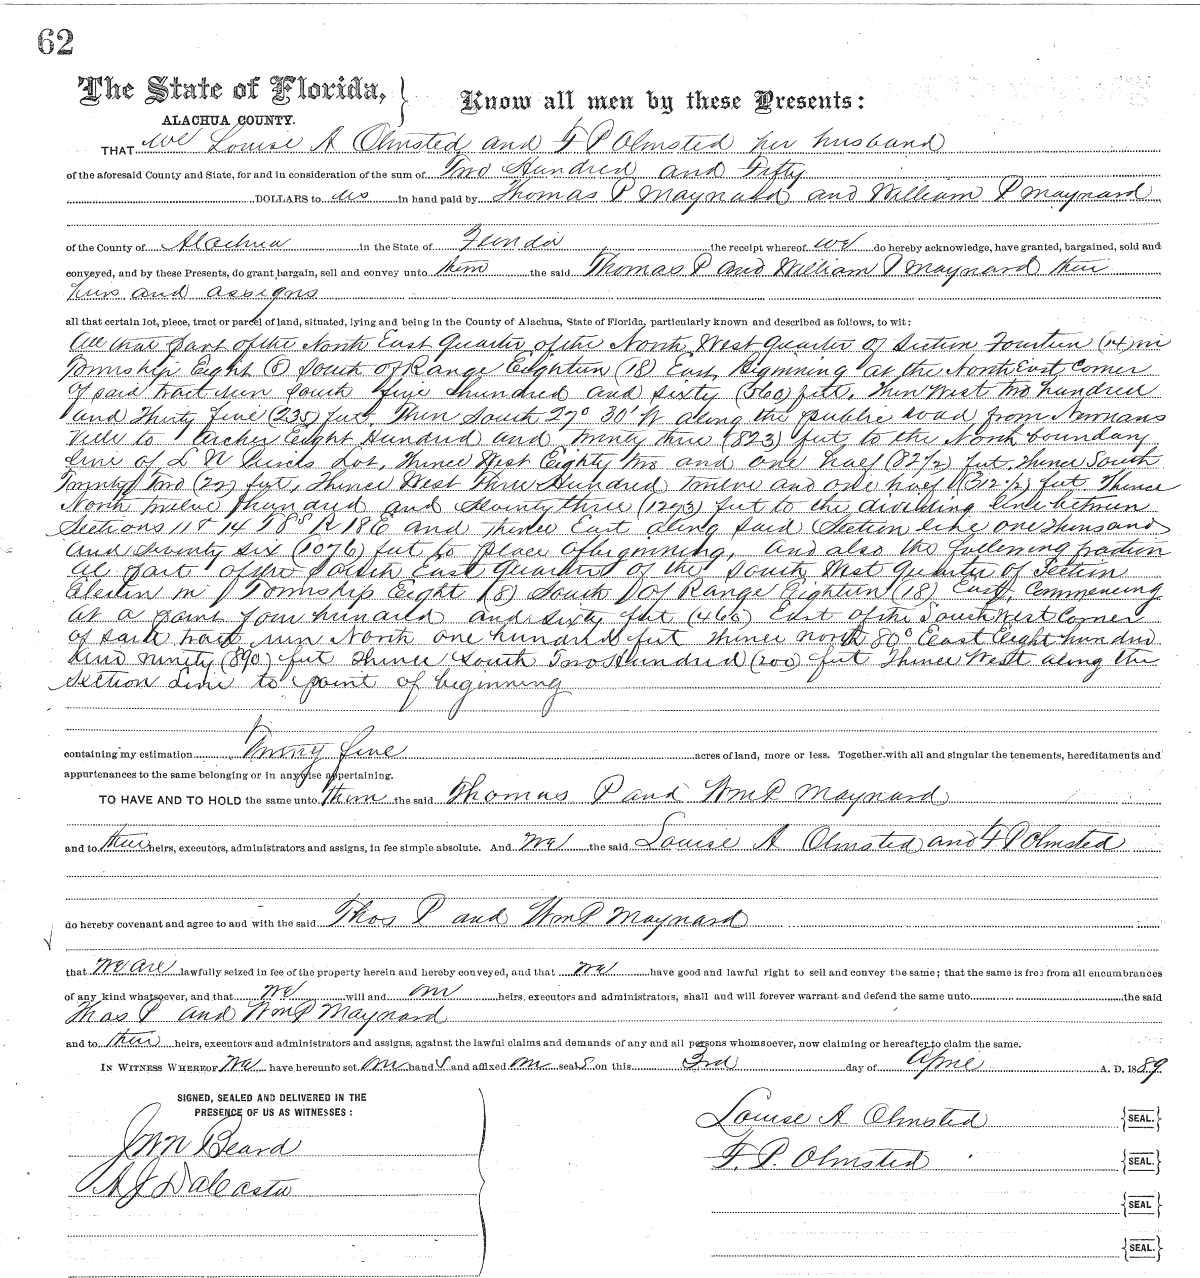 62
The State of Florida, } Know all men by these Presents:
ALACHUA COUNTY.
THAT we Louise A Olmsted and F P Olmsted her husband
of the aforesaid County and State, for and in consideration of the sum of Two Hundred and Fifty
DOLLARS to us in hand paid by Thomas P Maynard and William P Maynard
of the County of Alachua in the State of Florida the receipt whereof we do hereby acknowledge, have granted, bargained, sold and
conveyed, and by these Presents, do grant, bargain, sell and convey unto them the said Thomas P and William P Maynard their
heirs and assigns
all that certain lot, piece, tract or parcel of land, situated, lying and being in the County of Alachua, State of Florida, particularly known and described as follows, to wit:
All that part of the North East Quarter of the North West Quarter of Section Fourteen (14) in
Township Eight (8) South of Range Eighteen (18) East, Beginning at the North East Corner
of said tract run South five hundred and sixty (560) feet, then West two hundred
and Thirty five (235) feet, Then South 27° 30' W along the public road from Newmans
ville to Archer Eight Hundred and twenty three (823) feet to the North boundary
line of L N Lot, Thence West Eighty two and one half (82½) feet, Thence South
Twenty two (22) feet, Thence West Three Hundred twelve and one half (312½) feet Thence
North twelve hundred and seventy three (1273) feet to the dividing line between
Sections 11 & 14 T 8 S R 18 E and Thence East along said Section line one thousand
and seventy six (1076) feet to place of beginning, And also the following fraction
al part of the South East Quarter of the South West Quarter of Section
Eleven in Township Eight (8) South of Range Eighteen (18) East, Commencing
at a point four hundred and sixty feet (460) East of the South West Corner
of said tract run North one hundred feet Thence north 80° East Eight hundred
and ninety (890) feet Thence South Two Hundred (200) feet Thence West along the
Section line to point of beginning
containing my estimation Twenty five acres of land, more or less. Together with all and singular the tenements, hereditaments and
appurtenances to the same belonging or in anywise appertaining.
TO HAVE AND TO HOLD the same unto them the said Thomas P and Wm P Maynard
and to their heirs, executors, administrators and assigns, in fee simple absolute. And we the said Louise A Olmsted and F P Olmsted
do hereby covenant and agree to and with the said Thos P and Wm P Maynard
that we are lawfully seized in fee of the property herein and hereby conveyed, and that we have good and lawful right to sell and convey the same; that the same is free from all encumbrances
of any kind whatsoever, and that we will and our heirs, executors and administrators, shall and will forever warrant and defend the same unto the said
Thos P and Wm P Maynard
and to their heirs, executors and administrators and assigns, against the lawful claims and demands of any and all persons whomsoever, now claiming or hereafter to claim the same.
IN WITNESS WHEREOF we have hereunto set our hand s and affixed our seal s on this 3rd day of April A. D. 1889
SIGNED, SEALED AND DELIVERED IN THE
PRESENCE OF US AS WITNESSES:
Louise A Olmsted {SEAL.}
J W N Beard
F. P. Olmsted {SEAL.}
A J DaCosta
{SEAL}
{SEAL.}